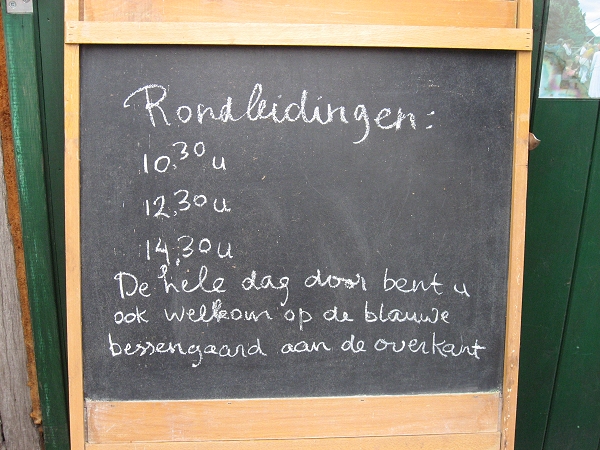 Rondleidingen:
10.30 u
12.30 u
14.30 u
De hele dag door bent u
ook welkom op de blauwe
bessengaard aan de overkant